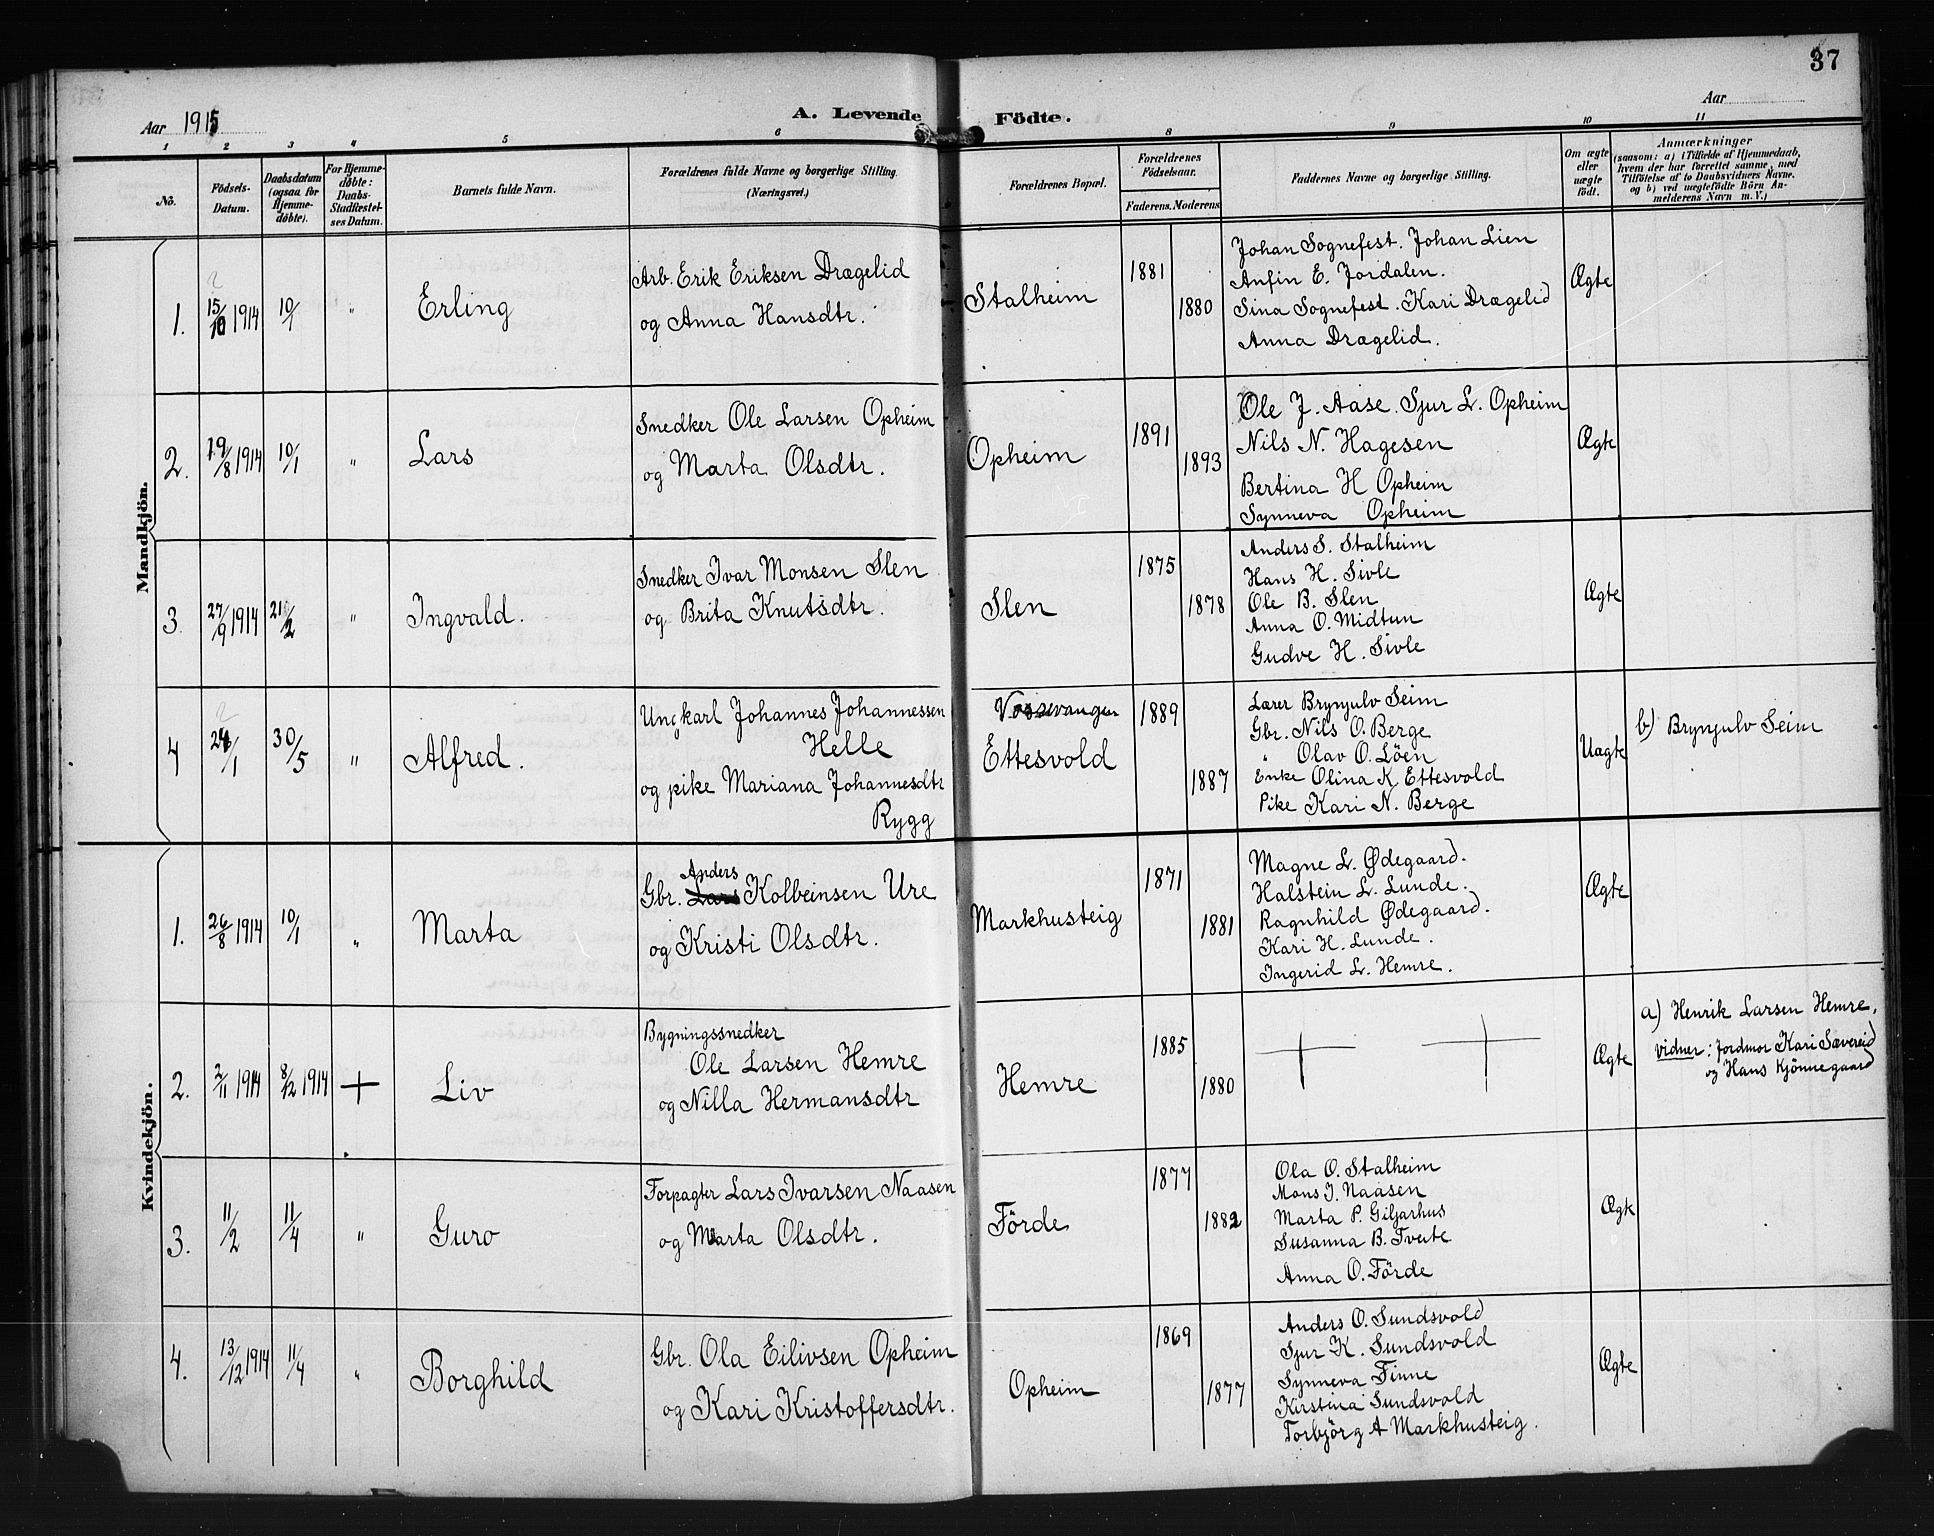 37
Aar 1915
A. Levende Födte.
Aar
1 2 3 4 5 6 8 9 10 11
No.
Födsels-Datum.
Daabsdatum (ogsaa for Hjemme-döbte).
For Hjemme-döbte: Daabs-Stadfæstel-ses Datum.
Barnets fulde Navn.
Forældrenes fulde Navne og borgerlige Stilling. (Næringsvei.)
Forældrenes Bopæl.
Forældrenes Födselsaar.
Faderens. Moderens
Faddernes Navne og borgerlige Stilling.
Om ægte eller uægte födt.
Anmærkninger
(saasom: a) i Tilfælde af Hjemmedaab,
hvem der har forrettet samme, med
Tilföielse af to Daabsvidners Navne,
og b) ved uægtefödte Börn An-
melderens Navn m. V.)
Mandkjön.
1. 15/10 1914 10/1 " Erling
Arb. Erik Eriksen Drægelid
og Anna Hansdtr.
Stalheim 1881 1880
Johan Sognefest. Johan Lien
Anfin E. Jordalen.
Sina Sognefest. Kari Drægelid
Anna Drægelid.
Ægte
2. 19/8 1914 10/1 " Lars
Snedker Ole Larsen Opheim
og Marta Olsdtr.
Opheim 1891 1893
Ole J. Aase. Sjur L. Opheim
Nils N. Hagesen
Bertina H Opheim
Synneva Opheim
Ægte
3. 27/9 1914 21/2 " Ingvald.
Snedker Ivar Monsen Slen
og Brita Knutsdtr.
Slen 1875 1878
Anders S. Stalheim
Hans H. Sivle
Ole B. Slen
Anna O. Midtun
Gudve H. Sivle
Ægte
4 24/1 30/5 " Alfred.
Ungkarl Johannes Johannessen
Helle
og pike Mariana Johannesdtr
Rygg
Vossevangen
Ettesvold 1889 1887
Lærer Brynjulv Seim
Gbr. Nils O. Berge
" Olav O. Löen
Enke Olina K. Ettesvold
Pike Kari N. Berge
Uægte
b) Brynjulv Seim
Kvindekjön.
1. 26/8 1914 10/1 " Marta
Anders
Gbr. Lars Kolbeinsen Ure
og Kristi Olsdtr.
Markhusteig 1871 1881
Magne L. Ødegaard.
Halstein L. Lunde.
Ragnhild Ødegaard.
Kari H. Lunde.
Ingerid L. Hemre.
Ægte
2. 2/11 1914 8/12 1914 + Liv
Bygningssnedker
Ole Larsen Hemre
og Nilla Hermansdtr
Hemre 1885 1880
Ægte
a) Henrik Larsen Hemre,
vidner: Jordmor Kari Sævereid
og Hans Kjönnegaard
3. 11/2 11/4 " Guro
Forpagter Lars Ivarsen Naasen
og Marta Olsdtr.
Förde 1877 1882
Ola O. Stalheim
Mons J. Naasen
Marta P. Giljarhus
Susanna B. Tveite
Anna O. Förde
Ægte
4. 13/12 1914 11/4 " Borghild
Gbr. Ola Eilivsen Opheim
og Kari Kristoffersdtr.
Opheim 1869 1877
Anders O. Sundsvold
Sjur K. Sundsvold
Synneva Finne
Kirstina Sundsvold
Torbjörg A Markhusteig.
Ægte